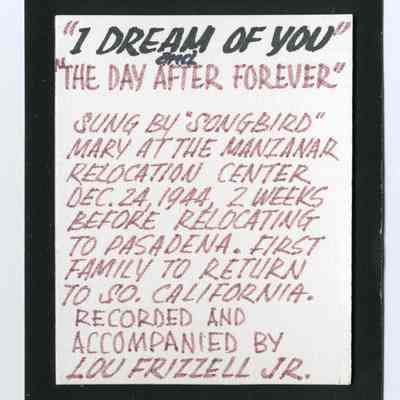 "I DREAM OF YOU"
and
"THE DAY AFTER FOREVER"
SUNG BY "SONGBIRD"
MARY AT THE MANZANAR
RELOCATION CENTER
DEC. 24, 1944, 2 WEEKS
BEFORE RELOCATING
TO PASADENA. FIRST
FAMILY TO RETURN
TO SO. CALIFORNIA.
RECORDED AND
ACCOMPANIED BY
LOU FRIZZELL JR.